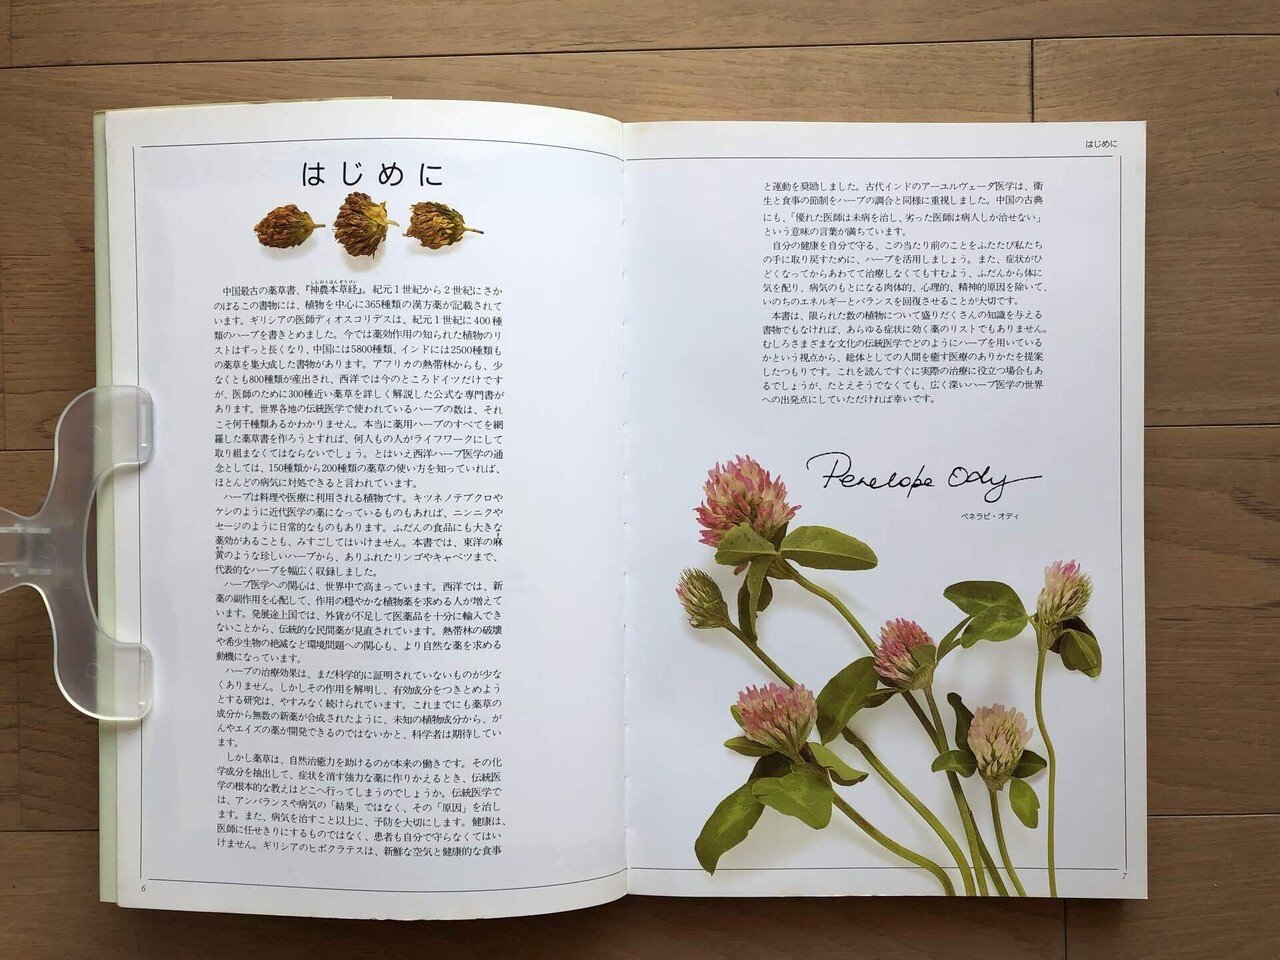 はじめに
中国最古の薬草書、『神農本草経』。紀元1世紀から2世紀にさか
しんのうほんぞうけい
のぼるこの書物には、植物を中心に365種類の漢方薬が記載されて
います。ギリシアの医師ディオスコリデスは、紀元1世紀に400種
類のハーブを書きとめました。今では薬効作用の知られた植物のリ
ストはずっと長くなり、中国には5800種類、インドには2500種類も
の薬草を集大成した書物があります。アフリカの熱帯林からも、少
なくとも800種類が産出され、西洋では今のところドイツだけです
が、医師のために300種近い薬草を詳しく解説した公式な専門書が
あります。世界各地の伝統医学で使われているハーブの数は、それ
こそ何千種類あるかわかりません。本当に薬用ハーブのすべてを網
羅した薬草書を作ろうとすれば、何人もの人がライフワークにして
取り組まなくてはならないでしょう。とはいえ西洋ハーブ医学の通
念としては、150種類から200種類の薬草の使い方を知っていれば、
ほとんどの病気に対処できると言われています。
ハーブは料理や医療に利用される植物です。キツネノテブクロや
ケシのように近代医学の薬になっているものもあれば、ニンニクや
セージのように日常的なものもあります。ふだんの食品にも大きな
薬効があることも、みすごしてはいけません。本書では、東洋の麻
黄のような珍しいハーブから、ありふれたリンゴやキャベツまで、
代表的なハーブを幅広く収録しました。
ハーブ医学への関心は、世界中で高まっています。西洋では、新
薬の副作用を心配して、作用の穏やかな植物薬を求める人が増えて
います。発展途上国では、外貨が不足して医薬品を十分に輸入でき
ないことから、伝統的な民間薬が見直されています。熱帯林の破壊
や希少生物の絶滅など環境問題への関心も、より自然な薬を求める
動機になっています。
ハーブの治療効果は、まだ科学的に証明されていないものが少な
くありません。しかしその作用を解明し、有効成分をつきとめよう
とする研究は、やすみなく続けられています。これまでにも薬草の
成分から無数の新薬が合成されたように、未知の植物成分から、が
んやエイズの薬が開発できるのではないかと、科学者は期待してい
ます。
しかし薬草は、自然治癒力を助けるのが本来の働きです。その化
学成分を抽出して、症状を消す強力な薬に作りかえるとき、伝統医
学の根本的な教えはどこへ行ってしまうのでしょうか。伝統医学で
は、アンバランスや病気の「結果」ではなく、その「原因」を治し
ます。また、病気を治すこと以上に、予防を大切にします。健康は、
医師に任せきりにするものではなく、患者も自分で守らなくてはい
けません。ギリシアのヒポクラテスは、新鮮な空気と健康的な食事
6
はじめに
と運動を奨励しました。古代インドのアーユルヴェーダ医学は、衛
生と食事の節制をハーブの調合と同様に重視しました。中国の古典
にも、「優れた医師は未病を治し、劣った医師は病人しか治せない」
という意味の言葉が満ちています。
自分の健康を自分で守る、この当たり前のことをふたたび私たち
の手に取り戻すために、ハーブを活用しましょう。また、症状がひ
どくなってからあわてて治療しなくてもすむよう、ふだんから体に
気を配り、病気のもとになる肉体的、心理的、精神的原因を除いて、
いのちのエネルギーとバランスを回復させることが大切です。
本書は、限られた数の植物について盛りだくさんの知識を与える
書物でもなければ、あらゆる症状に効く薬のリストでもありません。
むしろさまざまな文化の伝統医学でどのようにハーブを用いている
かという視点から、総体としての人間を癒す医療のありかたを提案
したつもりです。これを読んですぐに実際の治療に役立つ場合もあ
るでしょうが、たとえそうでなくても、広く深いハーブ医学の世界
への出発点にしていただければ幸いです。
Penelope Ody
ペネラピ・オディ
7